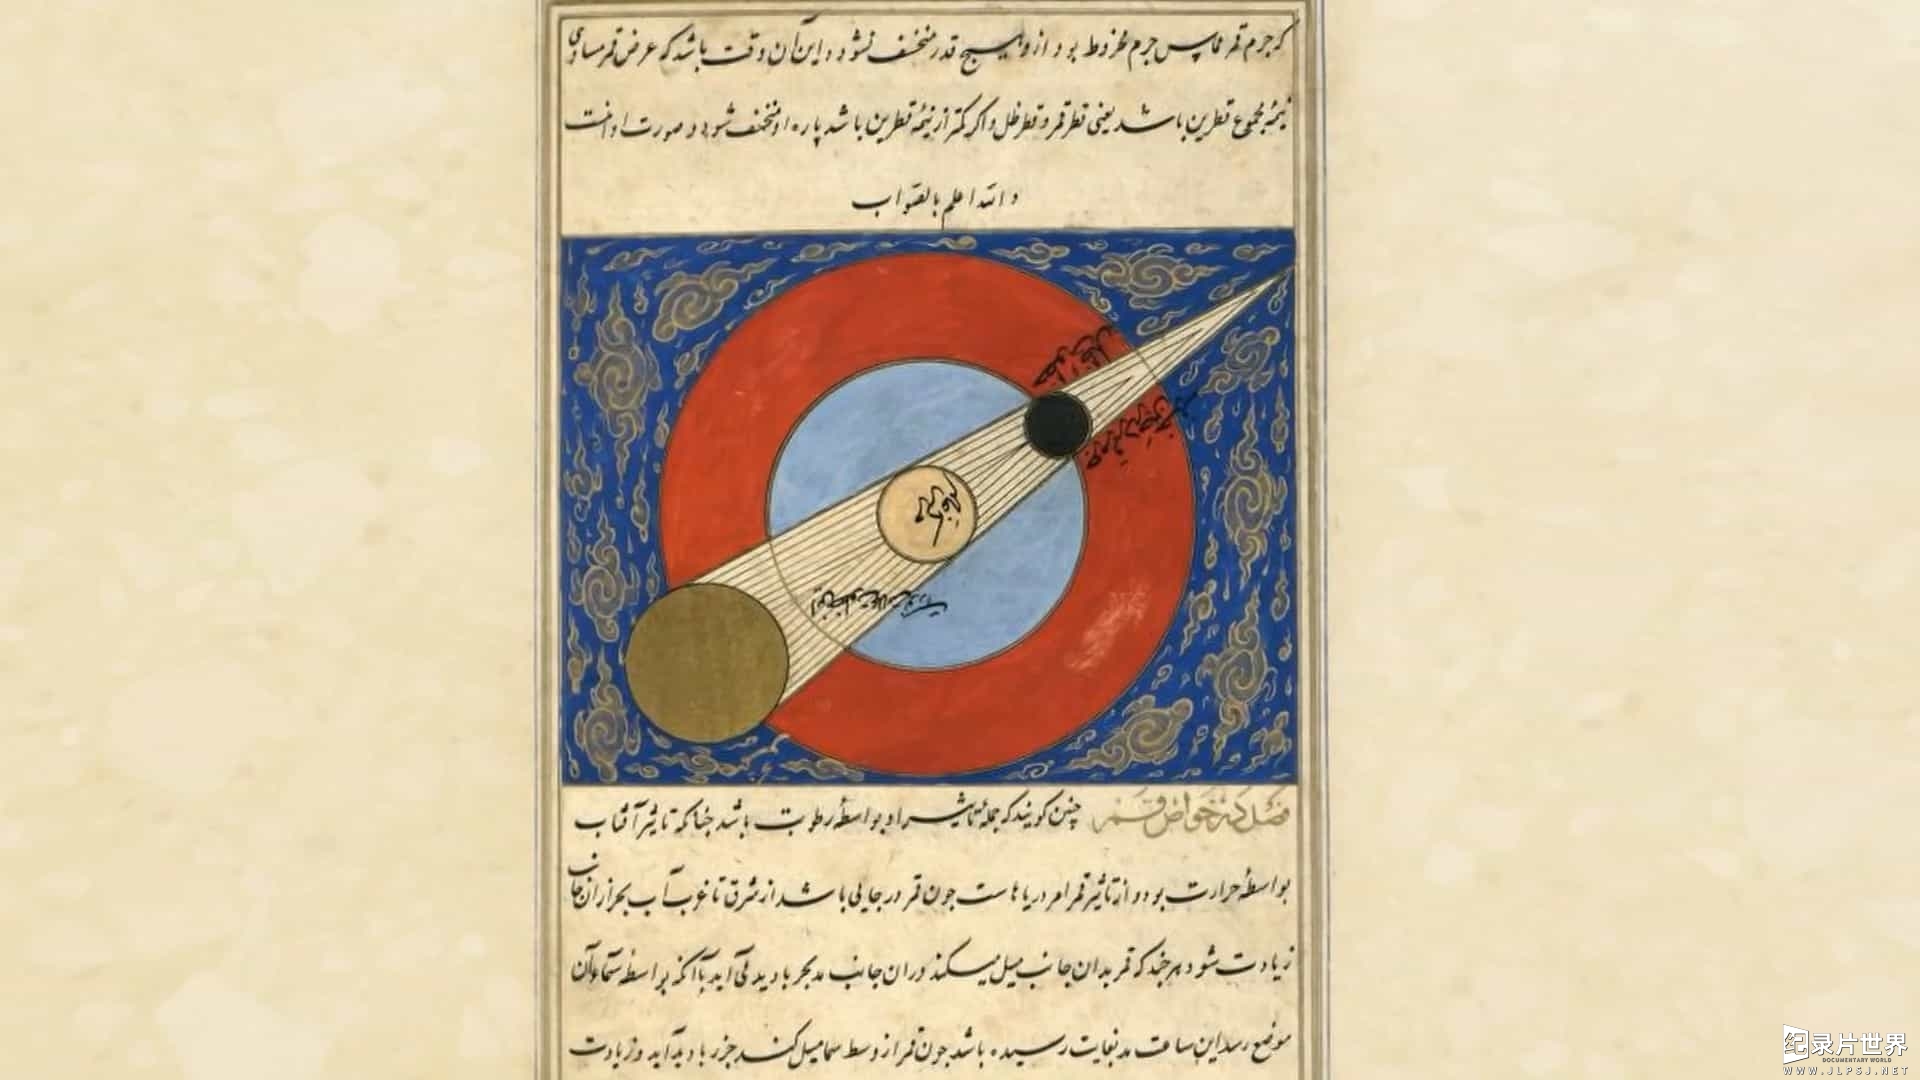 که جرم قمر مماس جرم مخروط بود از و هیچ قدر منخسف نشود و این آن وقت باشد که عرض قمر مساوی
نیمهٔ مجموع قطرین باشد یعنی قطر قمر و قطر ظل و اگر کمتر از نیمهٔ قطرین باشد پاره او منخسف شود و صورت او اینست
و الله اعلم بالصواب
فصل در خواص قمر چنین کویند که جمله تاثیر او بواسطهٔ رطوبت باشد چنانکه تاثیر آفتاب
بواسطهٔ حرارت بود و از تاثیر قمر امر دریاهاست چون قمر در جایی باشد از شرق تا غرب آب بحر از ان جانب
زیادت شود هر چند که قمر بدان جانب میل میکند در ان جانب مد بحر بادید می آید تا آنکه بواسطهٔ سماء آن
موضع رسد این ساعت مد بغایت رسیده باشد چون قمر از وسط سما میل کند جزر بادید آید و زیادت
纪录片世界
DOCUMENTARY WORLD
WWW.JLPSJ.NET